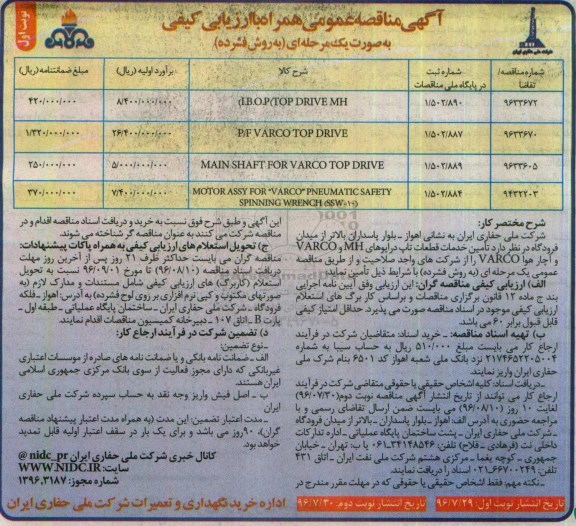 نوبت اول
آگهی مناقصه عمومی همراه با ارزیابی کیفی
به صورت یک مرحله ای (به روش فشرده)
شماره مناقصه/تقاضا
شماره ثبت در پایگاه ملی مناقصات
شرح کالا
برآورد اولیه (ریال)
مبلغ ضمانتنامه (ریال)
۹۶۳۳۶۷۲ ۱/۵۰۲/۸۹۰ (I.B.O.P)TOP DRIVE MH ۸/۴۰۰/۰۰۰/۰۰۰ ۴۲۰/۰۰۰/۰۰۰
۹۶۳۳۶۷۰ ۱/۵۰۲/۸۸۷ P/F VARCO TOP DRIVE ۲۶/۴۰۰/۰۰۰/۰۰۰ ۱/۳۲۰/۰۰۰/۰۰۰
۹۶۳۳۶۰۵ ۱/۵۰۲/۸۸۹ MAIN SHAFT FOR VARCO TOP DRIVE ۵/۰۰۰/۰۰۰/۰۰۰ ۲۵۰/۰۰۰/۰۰۰
۹۴۳۲۲۰۳ ۱/۵۰۲/۸۸۴ MOTOR ASSY FOR "VARCO" PNEUMATIC SAFETY ۷/۴۰۰/۰۰۰/۰۰۰ ۳۷۰/۰۰۰/۰۰۰
SPINNING WRENCH
شرح مختصر کار:
شرکت ملی حفاری ایران به نشانی اهواز ـ بلوار پاسداران بالاتر از میدان
فرودگاه در نظر دارد تأمین خدمات قطعات تاپ درایوهای MH و VARCO
و آچار هوا VARCO را از شرکت های واجد صلاحیت و از طریق مناقصه
عمومی یک مرحله ای (به روش فشرده) با شرایط ذیل تأمین نماید.
الف) ارزیابی کیفی مناقصه گران: این ارزیابی وفق آیین نامه اجرایی
بند ج ماده ۱۲ قانون برگزاری مناقصات و براساس کاربرگ های استعلام
ارزیابی کیفی موجود در اسناد مناقصه صورت می پذیرد. حداقل امتیاز کیفی
قابل قبول برابر ۶۰ می باشد.
ب) تهیه اسناد مناقصه: ـ خرید اسناد: متقاضیان شرکت در فرآیند
ارجاع کار می بایست مبلغ ۵۱۰/۰۰۰ ریال به حساب سیبا به شماره
۲۱۷۴۶۵۲۲۰۵۰۰۴ نزد بانک ملی شعبه اهواز کد ۶۵۰۱ بنام شرکت ملی
حفاری ایران واریز نمایند.
ـ دریافت اسناد: کلیه اشخاص حقیقی یا حقوقی متقاضی شرکت در فرآیند
ارجاع کار می توانند از تاریخ انتشار آگهی مناقصه نوبت دوم (۹۶/۰۷/۳۰)
لغایت ۱۰ روز (۹۶/۰۸/۱۰) می بایست ضمن ارسال تقاضای رسمی و با
مراجعه حضوری به آدرس الف: اهواز ـ بلوار پاسداران ـ بالاتر از میدان فرودگاه
ـ شرکت ملی حفاری ایران ـ پشت ساختمان پایگاه عملیاتی ـ اداره تدارکات
داخلی نت (فرهادی ـ فلاح) تلفن: ۳۴۱۴۸۵۴۶ـ۰۶۱ یا ب: تهران ـ خیابان
جمهوری ـ کوچه یغما ـ مرکزی هشتم شرکت ملی نفت ایران ـ اتاق ۴۳۱
تلفن: ۶۶۷۰۰۲۴۹ـ۰۲۱ اسناد را دریافت نمایند.
ـ نکته مهم: فقط اشخاص حقیقی یا حقوقی که در مهلت مقرر مندرج در
این آگهی و طبق شرح فوق نسبت به خرید و دریافت اسناد مناقصه اقدام و در
مناقصه شرکت می کنند به عنوان مناقصه گر شناخته می شوند.
ج) تحویل استعلام های ارزیابی کیفی به همراه پاکات پیشنهادات:
مناقصه گران می بایست حداکثر ظرف ۲۱ روز پس از آخرین روز مهلت
دریافت اسناد مناقصه (۹۶/۰۸/۱۰) تا مورخ ۹۶/۰۹/۰۱ نسبت به تحویل
استعلام (کاربرگ) های ارزیابی کیفی شامل مستندات و مدارک لازم (به
صورتهای مکتوب و کپی نرم افزاری بر روی لوح فشرده) به آدرس: اهواز ـ فلکه
فرودگاه ـ شرکت ملی حفاری ایران ـ ساختمان پایگاه عملیاتی ـ طبقه اول ـ
پارت B ـ اتاق ۱۰۷ ـ دبیرخانه کمیسیون مناقصات اقدام نمایند.
د) تضمین شرکت در فرآیند ارجاع کار:
ـ نوع تضمین:
الف ـ ضمانت نامه بانکی و یا ضمانت نامه های صادره از موسسات اعتباری
غیربانکی که دارای مجوز فعالیت از سوی بانک مرکزی جمهوری اسلامی
ایران هستند.
ب ـ اصل فیش واریز وجه نقد به حساب سپرده شرکت ملی حفاری
ایران
ـ مدت اعتبار تضمین: این مدت (به همراه مدت اعتبار پیشنهاد مناقصه
گران)، ۹۰ روز می باشد و برای یک بار در سقف اعتبار اولیه قابل تمدید
خواهد بود.
کانال خبری شرکت ملی حفاری ایران @ nidc_pr
سایت: WWW.NIDC.IR
شماره مجوز: ۱۳۹۶.۳۱۸۷
تاریخ انتشار نوبت اول: ۹۶/۷/۲۹ تاریخ انتشار نوبت دوم: ۹۶/۷/۳۰
اداره خرید نگهداری و تعمیرات شرکت ملی حفاری ایران